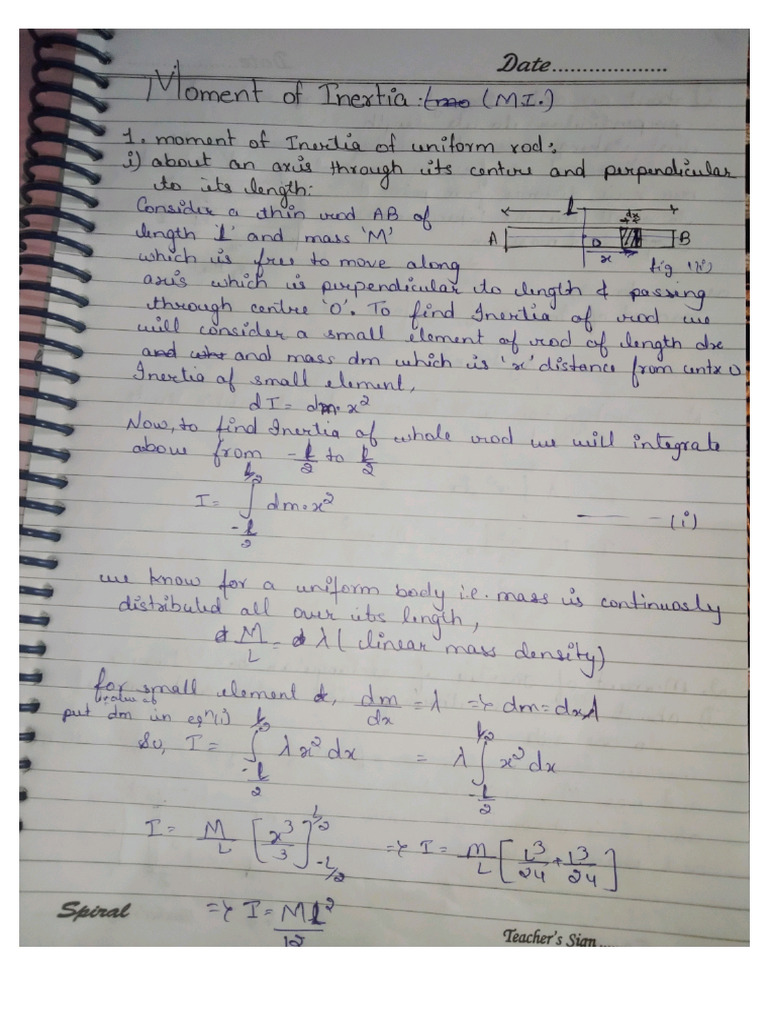 Date...................
Moment of Inertia: (M.I.)
1. moment of Inertia of uniform rod:
i) about an axis through its centre and perpendicular
to its length:
Consider a thin rod AB of
length 'l' and mass 'M'
which is free to move along
axis which is perpendicular to length & passing
through centre 'O'. To find Inertia of rod we
will consider a small element of rod of length dx
and mass dm which is 'x' distance from O
Inertia of small element,
l
dx
A
O
B
x
fig (i)
dI = dm·x²
Now, to find Inertia of whole rod we will integrate
above from -l/2 to l/2
I = ∫_{-l/2}^{l/2} dm·x² ——— - (i)
we know for a uniform body i.e. mass is continuosly
distributed all over its length,
M/L = λ (linear mass density)
for small element, dm/dx = λ => dm = dxλ
value of
put dm in eqⁿ(i)
So, I = ∫_{-l/2}^{l/2} λx²dx = λ ∫_{-l/2}^{l/2} x²dx
I = M/L [x³/3]_{-L/2}^{L/2} => I = M/L [L³/24 + L³/24]
=> I = Ml²/12
Spiral
Teacher's Sign.....